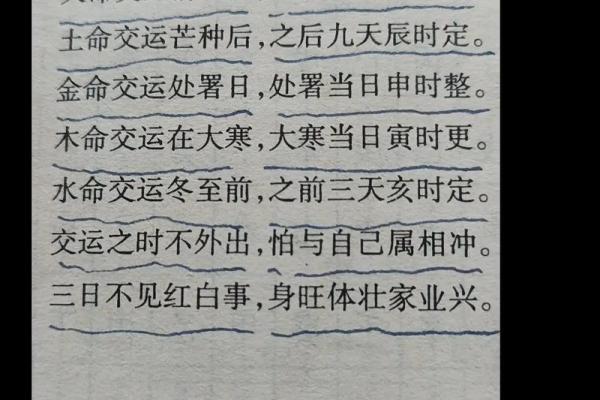 土命交运芒种后,之后九天辰时定。
金命交运处署日,处署当日申时整。
木命交运在大寒,大寒当日寅时更。
水命交运冬至前,之前三天亥时定。
交运之时不外出,怕与自己属相冲。
三日不见红白事,身旺体壮家业兴。